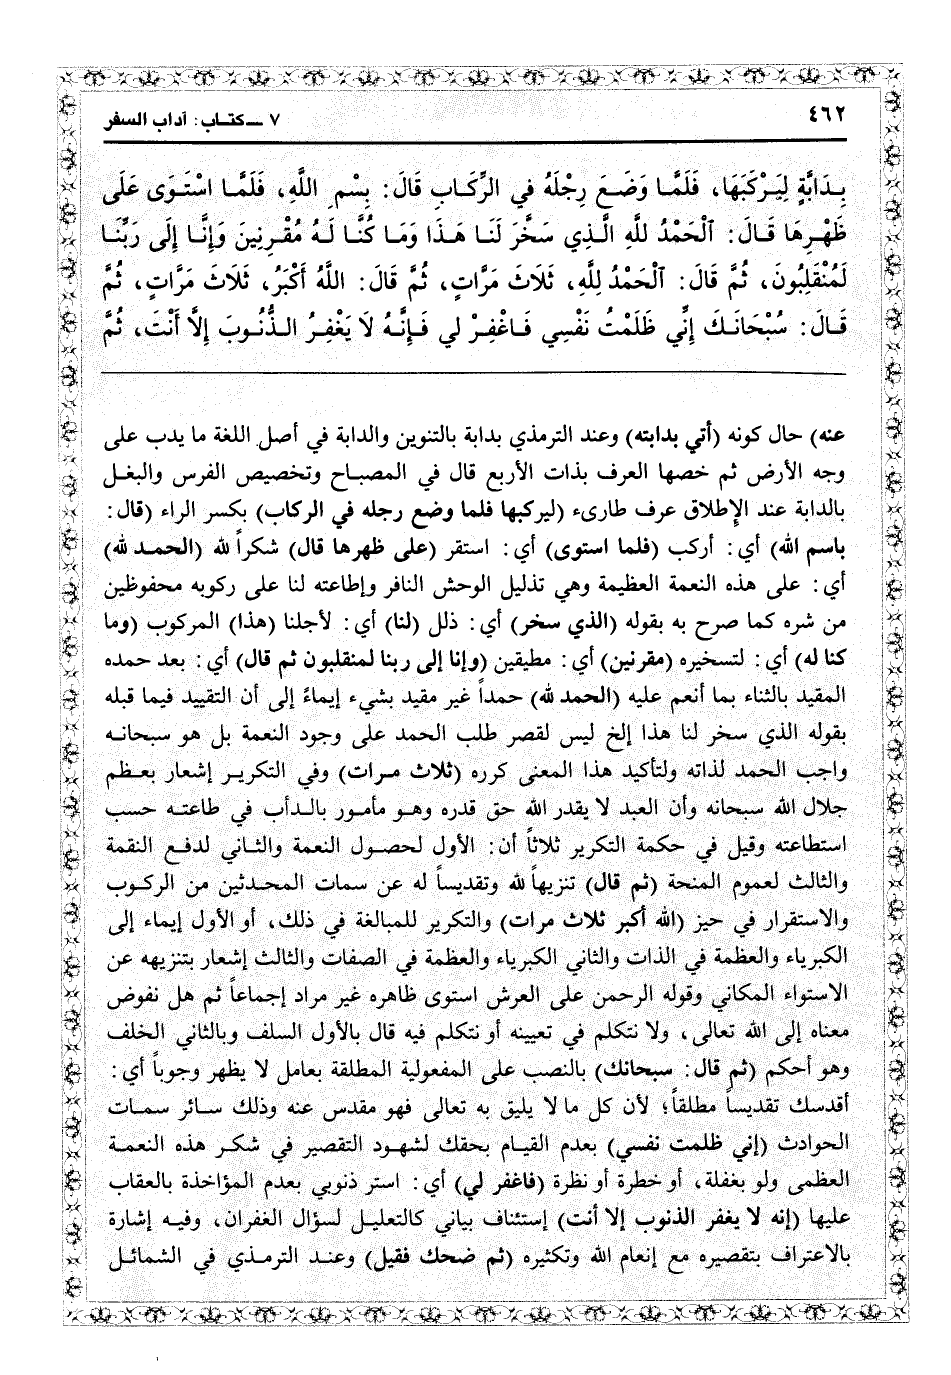 ٤٦٢
٧ ــ كتــاب: آداب السفر
بِـدَابَّةٍ لِيَـرْكَبَهَا، فَلَمَّا وَضَعَ رِجْلَهُ في الرِّكَـابِ قَالَ: بِسْمِ اللَّهِ، فَلَمَّـا اسْتَـوَى عَلَى
ظَهْـرِهَا قَـالَ: اَلْحَمْدُ للَّهِ الَّـذِي سَخَّرَ لَنَـا هَـذَا وَمَـا كُنَّـا لَـهُ مُقْـرِنِينَ وَإِنَّـا إِلَى رَبِّنَـا
لَمُنْقَلِبُونَ، ثُمَّ قَالَ: اَلْحَمْدُ لِلَّهِ، ثَلَاثَ مَرَّاتٍ، ثُمَّ قَالَ: اللَّهُ أَكْبَرُ، ثَلَاثَ مَرَّاتٍ، ثُمَّ
قَـالَ: سُبْحَانَـكَ إِنِّي ظَلَمْتُ نَفْسِي فَـاغْفِـرْ لي فَـإِنَّـهُ لَا يَغْفِـرُ الـذُّنُـوبَ إِلَّا أَنْتَ، ثُمَّ
عنه) حال كونه (أتي بدابته) وعند الترمذي بدابة بالتنوين والدابة في أصل اللغة ما يدب على
وجه الأرض ثم خصها العرف بذات الأربع قال في المصبـاح وتخصيص الفرس والبغل
بالدابة عند الإطلاق عرف طارىء (ليركبها فلما وضع رجله في الركاب) بكسر الراء (قال:
باسم الله) أي: أركب (فلما استوى) أي: استقر (على ظهرها قال) شكراً لله (الحمـد لله)
أي: على هذه النعمة العظيمة وهي تذليل الوحش النافر وإطاعته لنا على ركوبه محفوظين
من شره كما صرح به بقوله (الذي سخر) أي: ذلل (لنا) أي: لأجلنا (هذا) المركوب (وما
كنا له) أي: لتسخيره (مقرنين) أي: مطيقين (وإنا إلى ربنا لمنقلبون ثم قال) أي: بعد حمده
المقيد بالثناء بما أنعم عليه (الحمد لله) حمداً غير مقيد بشيء إيماءً إلى أن التقييد فيما قبله
بقوله الذي سخر لنا هذا إلخ ليس لقصر طلب الحمد على وجود النعمة بل هو سبحانـه
واجب الحمد لذاته ولتأكيد هذا المعنى كرره (ثلاث مـرات) وفي التكريـر إشعار بعـظم
جلال الله سبحانه وأن العبد لا يقدر الله حق قدره وهـو مأمـور بالـدأب في طاعتـه حسب
استطاعته وقيل في حكمة التكرير ثلاثاً أن: الأول لحصـول النعمة والثـاني لدفـع النقمة
والثالث لعموم المنحة (ثم قال) تنزيهاً لله وتقديساً له عن سمات المحدثين من الركوب
والاستقرار في حيز (الله أكبر ثلاث مرات) والتكرير للمبالغة في ذلك، أو الأول إيماء إلى
الكبرياء والعظمة في الذات والثاني الكبرياء والعظمة في الصفات والثالث إشعار بتنزيهه عن
الاستواء المكاني وقوله الرحمن على العرش استوى ظاهره غير مراد إجماعاً ثم هل نفوض
معناه إلى الله تعالى، ولا نتكلم في تعيينه أو نتكلم فيه قال بالأول السلف وبالثاني الخلف
وهو أحكم (ثم قال: سبحانك) بالنصب على المفعولية المطلقة بعامل لا يظهر وجوباً أي:
أقدسك تقديساً مطلقاً؛ لأن كل ما لا يليق به تعالى فهو مقدس عنه وذلك سـائر سمـات
الحوادث (إني ظلمت نفسي) بعدم القيام بحقك لشهود التقصير في شكر هذه النعمـة
العظمى ولو بغفلة، أو خطرة أو نظرة (فاغفر لي) أي: استر ذنوبي بعدم المؤاخذة بالعقاب
عليها (إنه لا يغفر الذنوب إلا أنت) إستئناف بياني كالتعليل لسؤال الغفران، وفيه إشارة
بالاعتراف بتقصيره مع إنعام الله وتكثيره (ثم ضحك فقيل) وعند الترمذي في الشمائـل